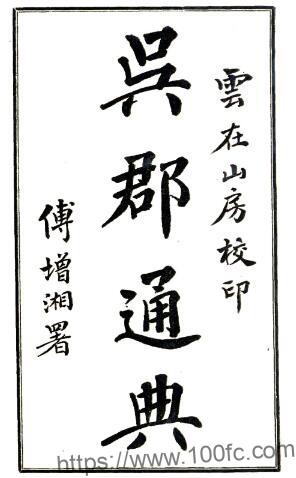 雲在山房校印
吳郡通典
傅增湘署
https://www.100fc.com